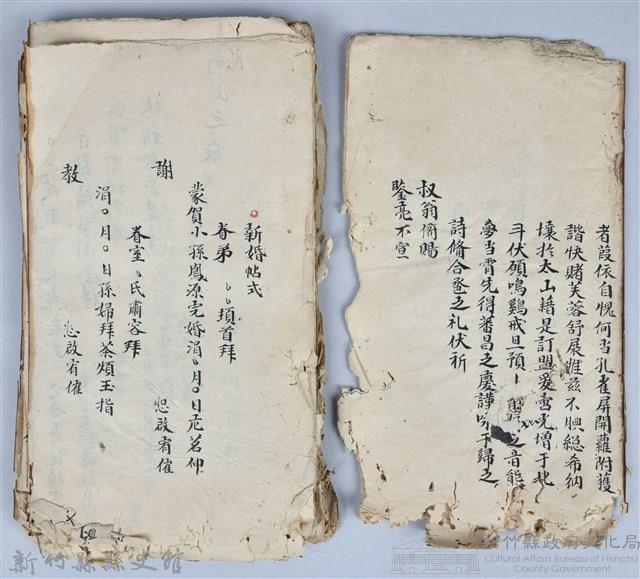 者葭依自愧何当孔雀屏開蘿附獲
諧快賭芙蓉舒展誰兹不腆總希納
壤於太山藉是訂盟爰啻光增于北
斗伏願鳴鷄戒旦預卜 之音能
夢当霄先得蕃昌之慶謹 于歸之
詩脩合巹之礼伏祈
叔翁俯賜
鍳亮不宣
新婚帖式
眷弟 頊首拜
蒙賀小孫鳳源完婚涓〇月〇日卮茗伸
謝 恕啟宥催
眷室 氏肅容拜
涓〇月〇日孫婦拜茶煩玉指
教 恕啟宥催
新竹縣縣史館
新竹縣政府文化局
Cultural Affairs Bureau of Hsinchu
County Government